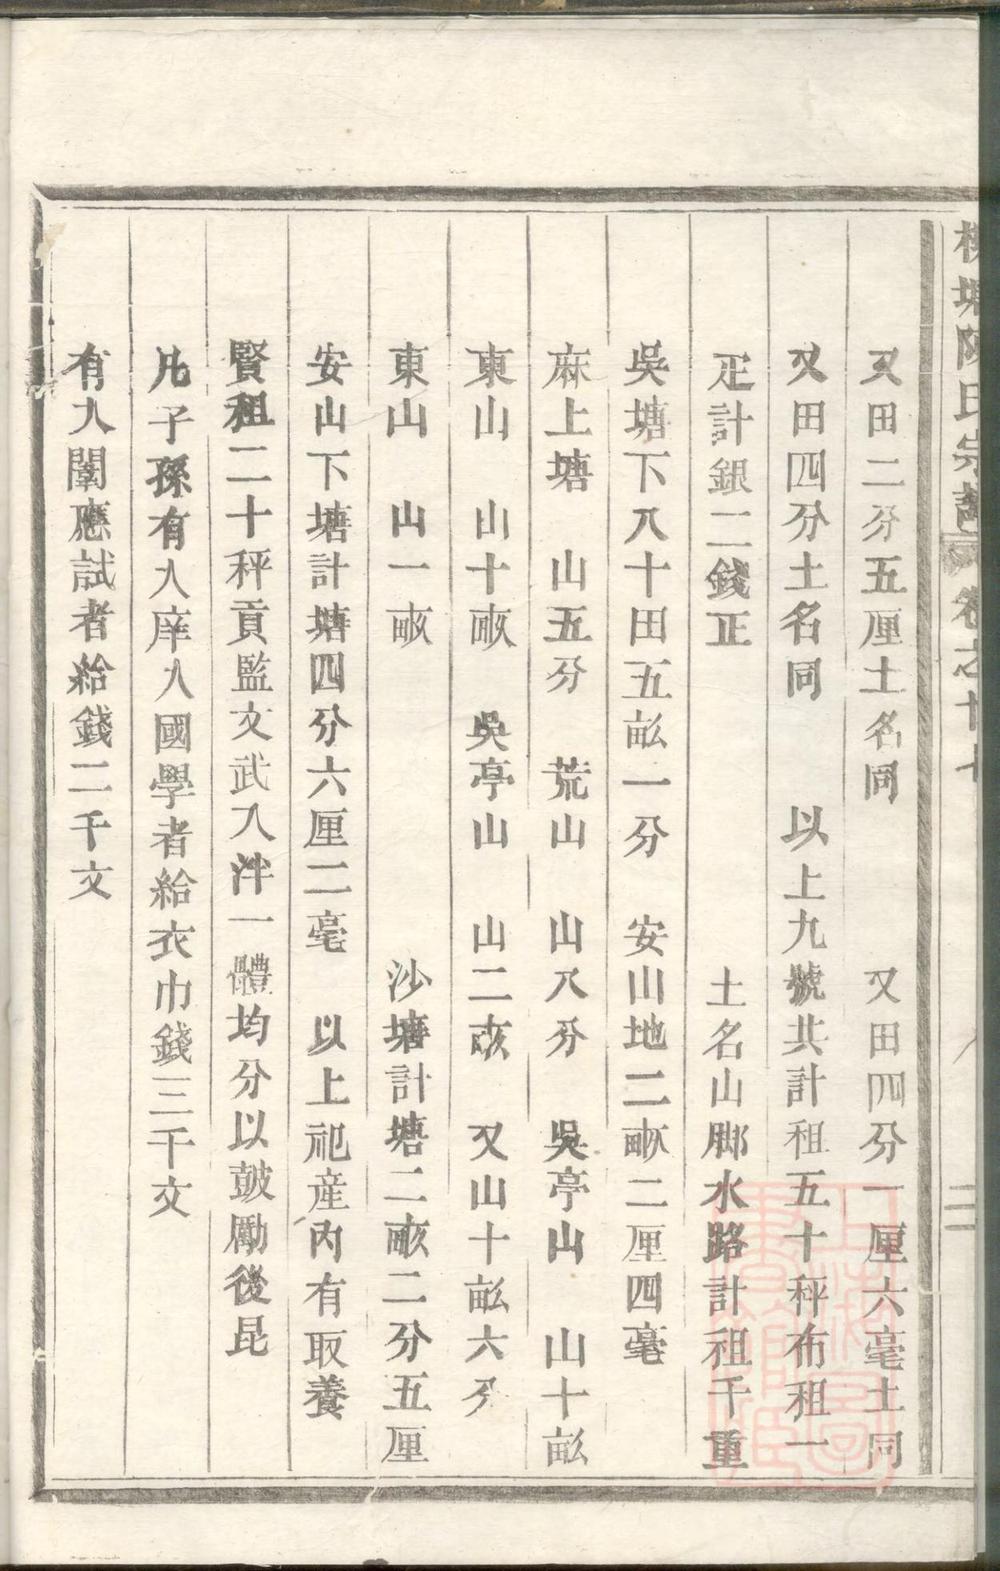 塘陳氏宗譜 卷之十七 二
又田二分五厘土名同 又田四分一厘六毫土同
又田四分土名同 以上九號共計租五十秤布租一
疋計銀二錢正 土名山脚水路計租千重
吳塘下八十田五畝一分 安山地二畝二厘四毫
麻上塘 山五分 荒山 山八分 吳亭山 山十畝
東山 山十畝 吳亭山 山二畝 又山十畝六分
東山 山一畝 沙塘計塘二畝二分五厘
安山下塘計塘四分六厘二毫 以上祀産内有取養
賢租二十秤貢監文武入泮一體均分以鼓勵後昆
凡子孫有入庠入國學者給衣巾錢三千文
有入闈應試者給錢二千文